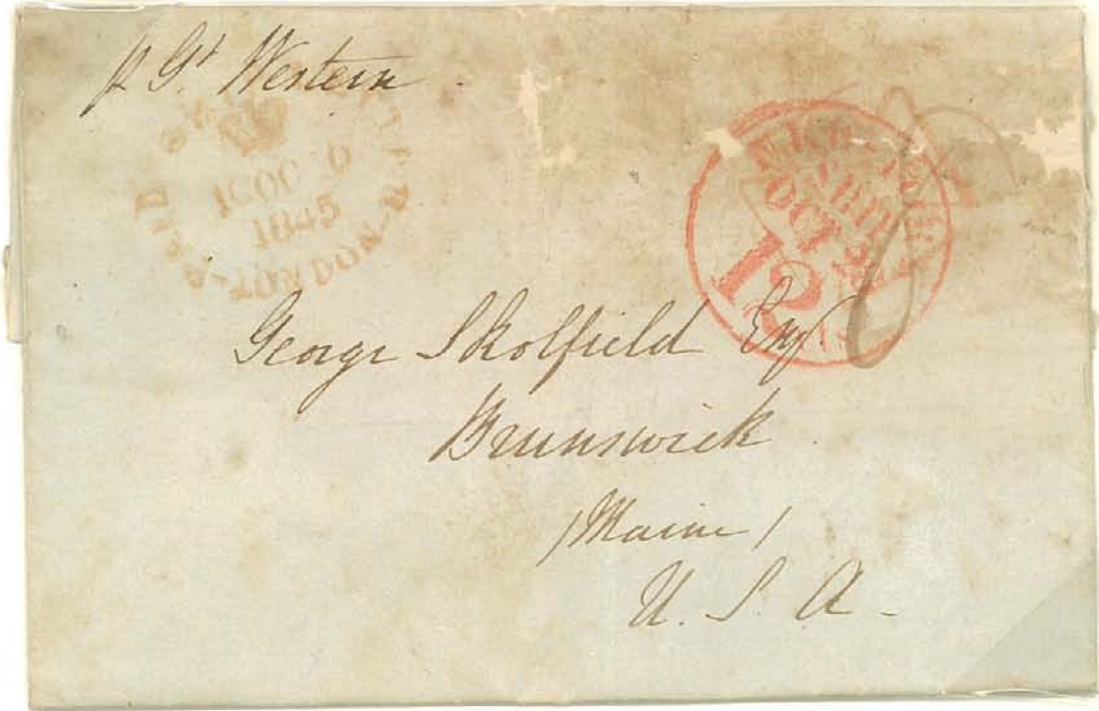 p Gt Western
PAID
1845
LONDON
NEW-YORK
SHIP
OCT
12
George Skolfield Esq.
Brunswick
/Maine/
U. S. A -